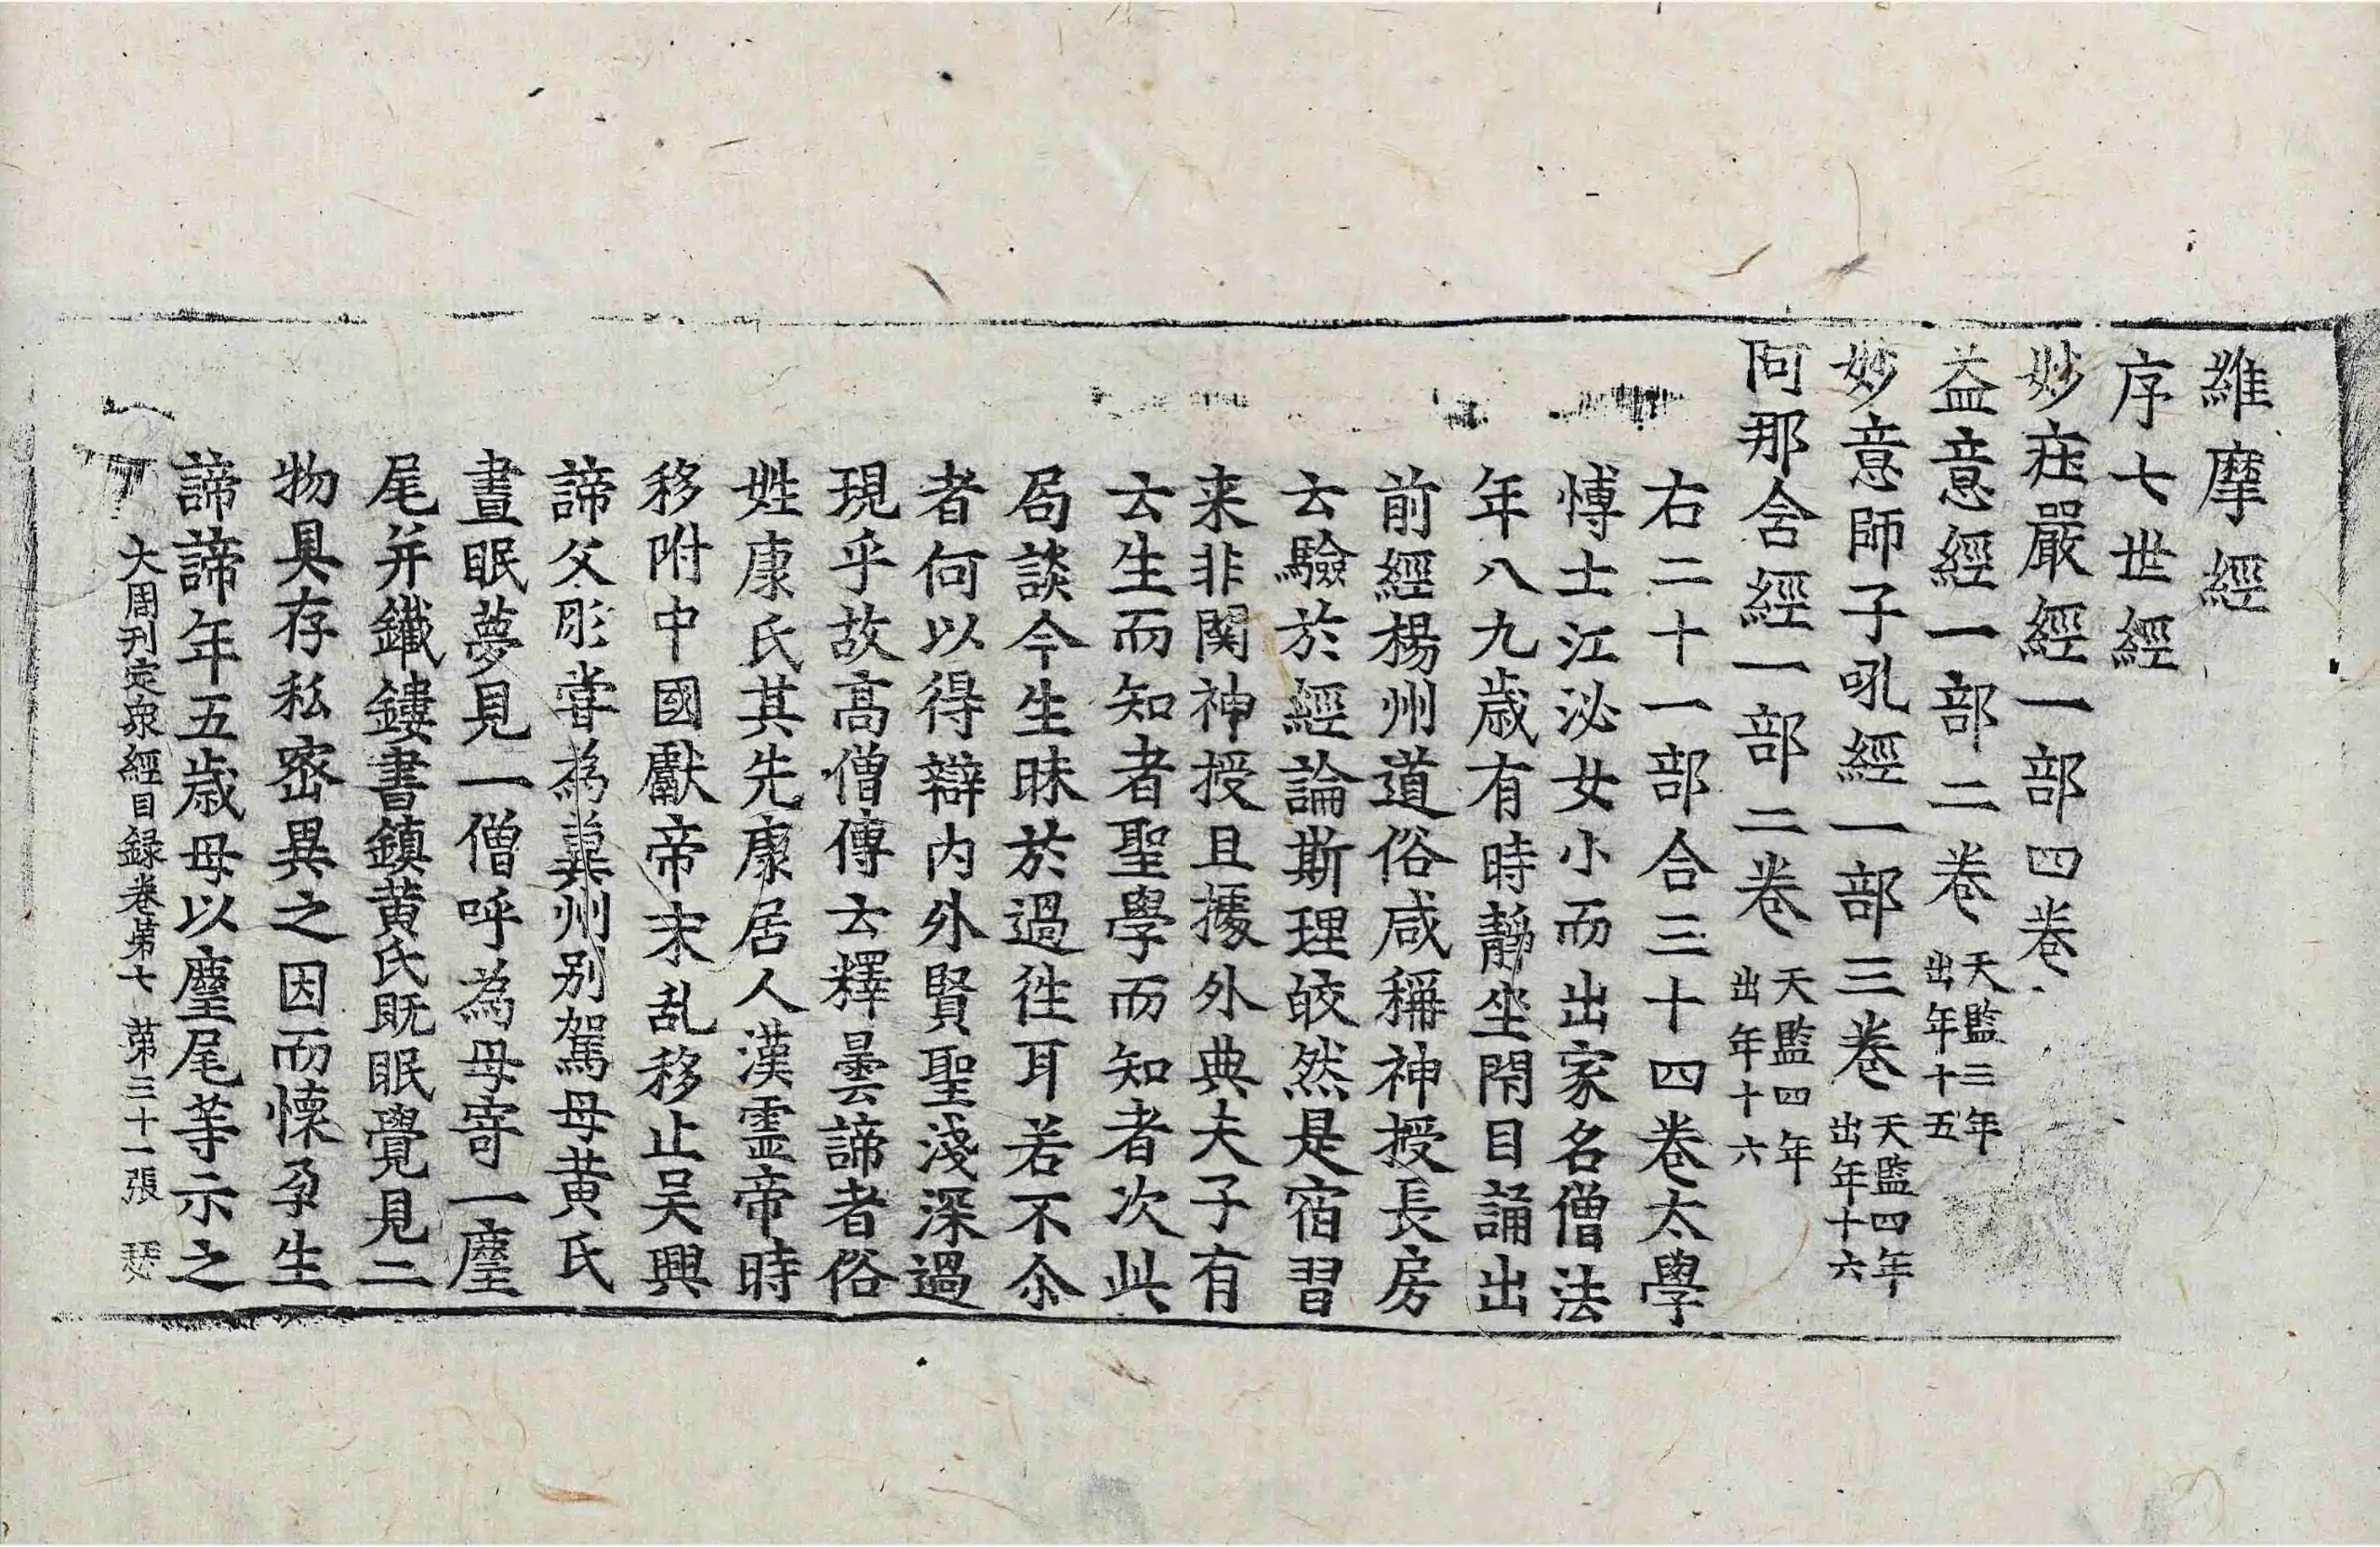 維摩經
序七世經
妙疘嚴經一部四卷
益意經一部二卷 天監三年出年十五
妙意師子吼經一部三卷 天監四年出年十六
阿那含經一部二卷 天監四年出年十六
右二十一部合三十四卷太學
愽士江泌女小而出家名僧法
年八九歲有時靜坐閇目誦出
前經楊州道俗咸稱神授長房
云驗於經論斯理皎然是宿習
来非関神授且據外典夫子有
云生而知者聖學而知者次此
局談今生昧於過徃耳若不尒
者何以得辯內外賢聖淺深過
現乎故高僧傳云釋曇諦者俗
姓康氏其先康居人漢霊帝時
移附中國獻帝末乱移止吴興
諦父肜甞為兾州別駕母黄氏
晝眠夢見一僧呼為母寄一麈
尾并鐵鏤書鎮黄氏旣眠覺見二
物具存私密異之因而懷孕生
諦諦年五歲母以麈尾等示之
大周刊定衆經目録卷第七 第三十一張